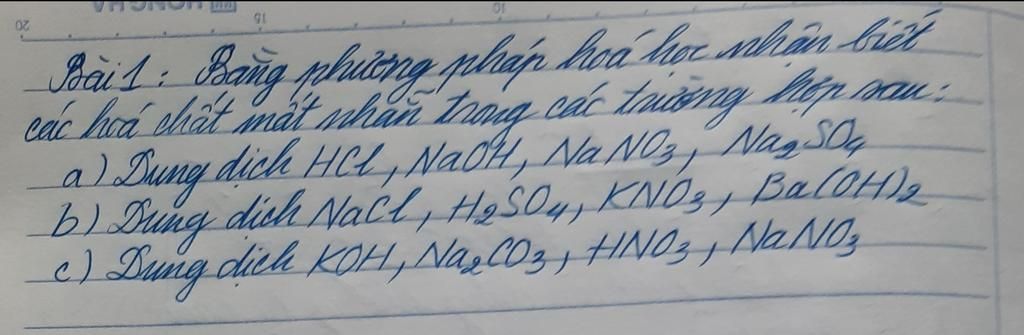 20 15 10
Bài 1: Bằng phương pháp hoá học nhận biết
các hoá chất mất nhãn trong các trường hợp sau:
a) Dung dịch HCl, NaOH, NaNO3, Na2SO4
b) Dung dịch NaCl, H2SO4, KNO3, Ba(OH)2
c) Dung dịch KOH, Na2CO3, HNO3, NaNO3